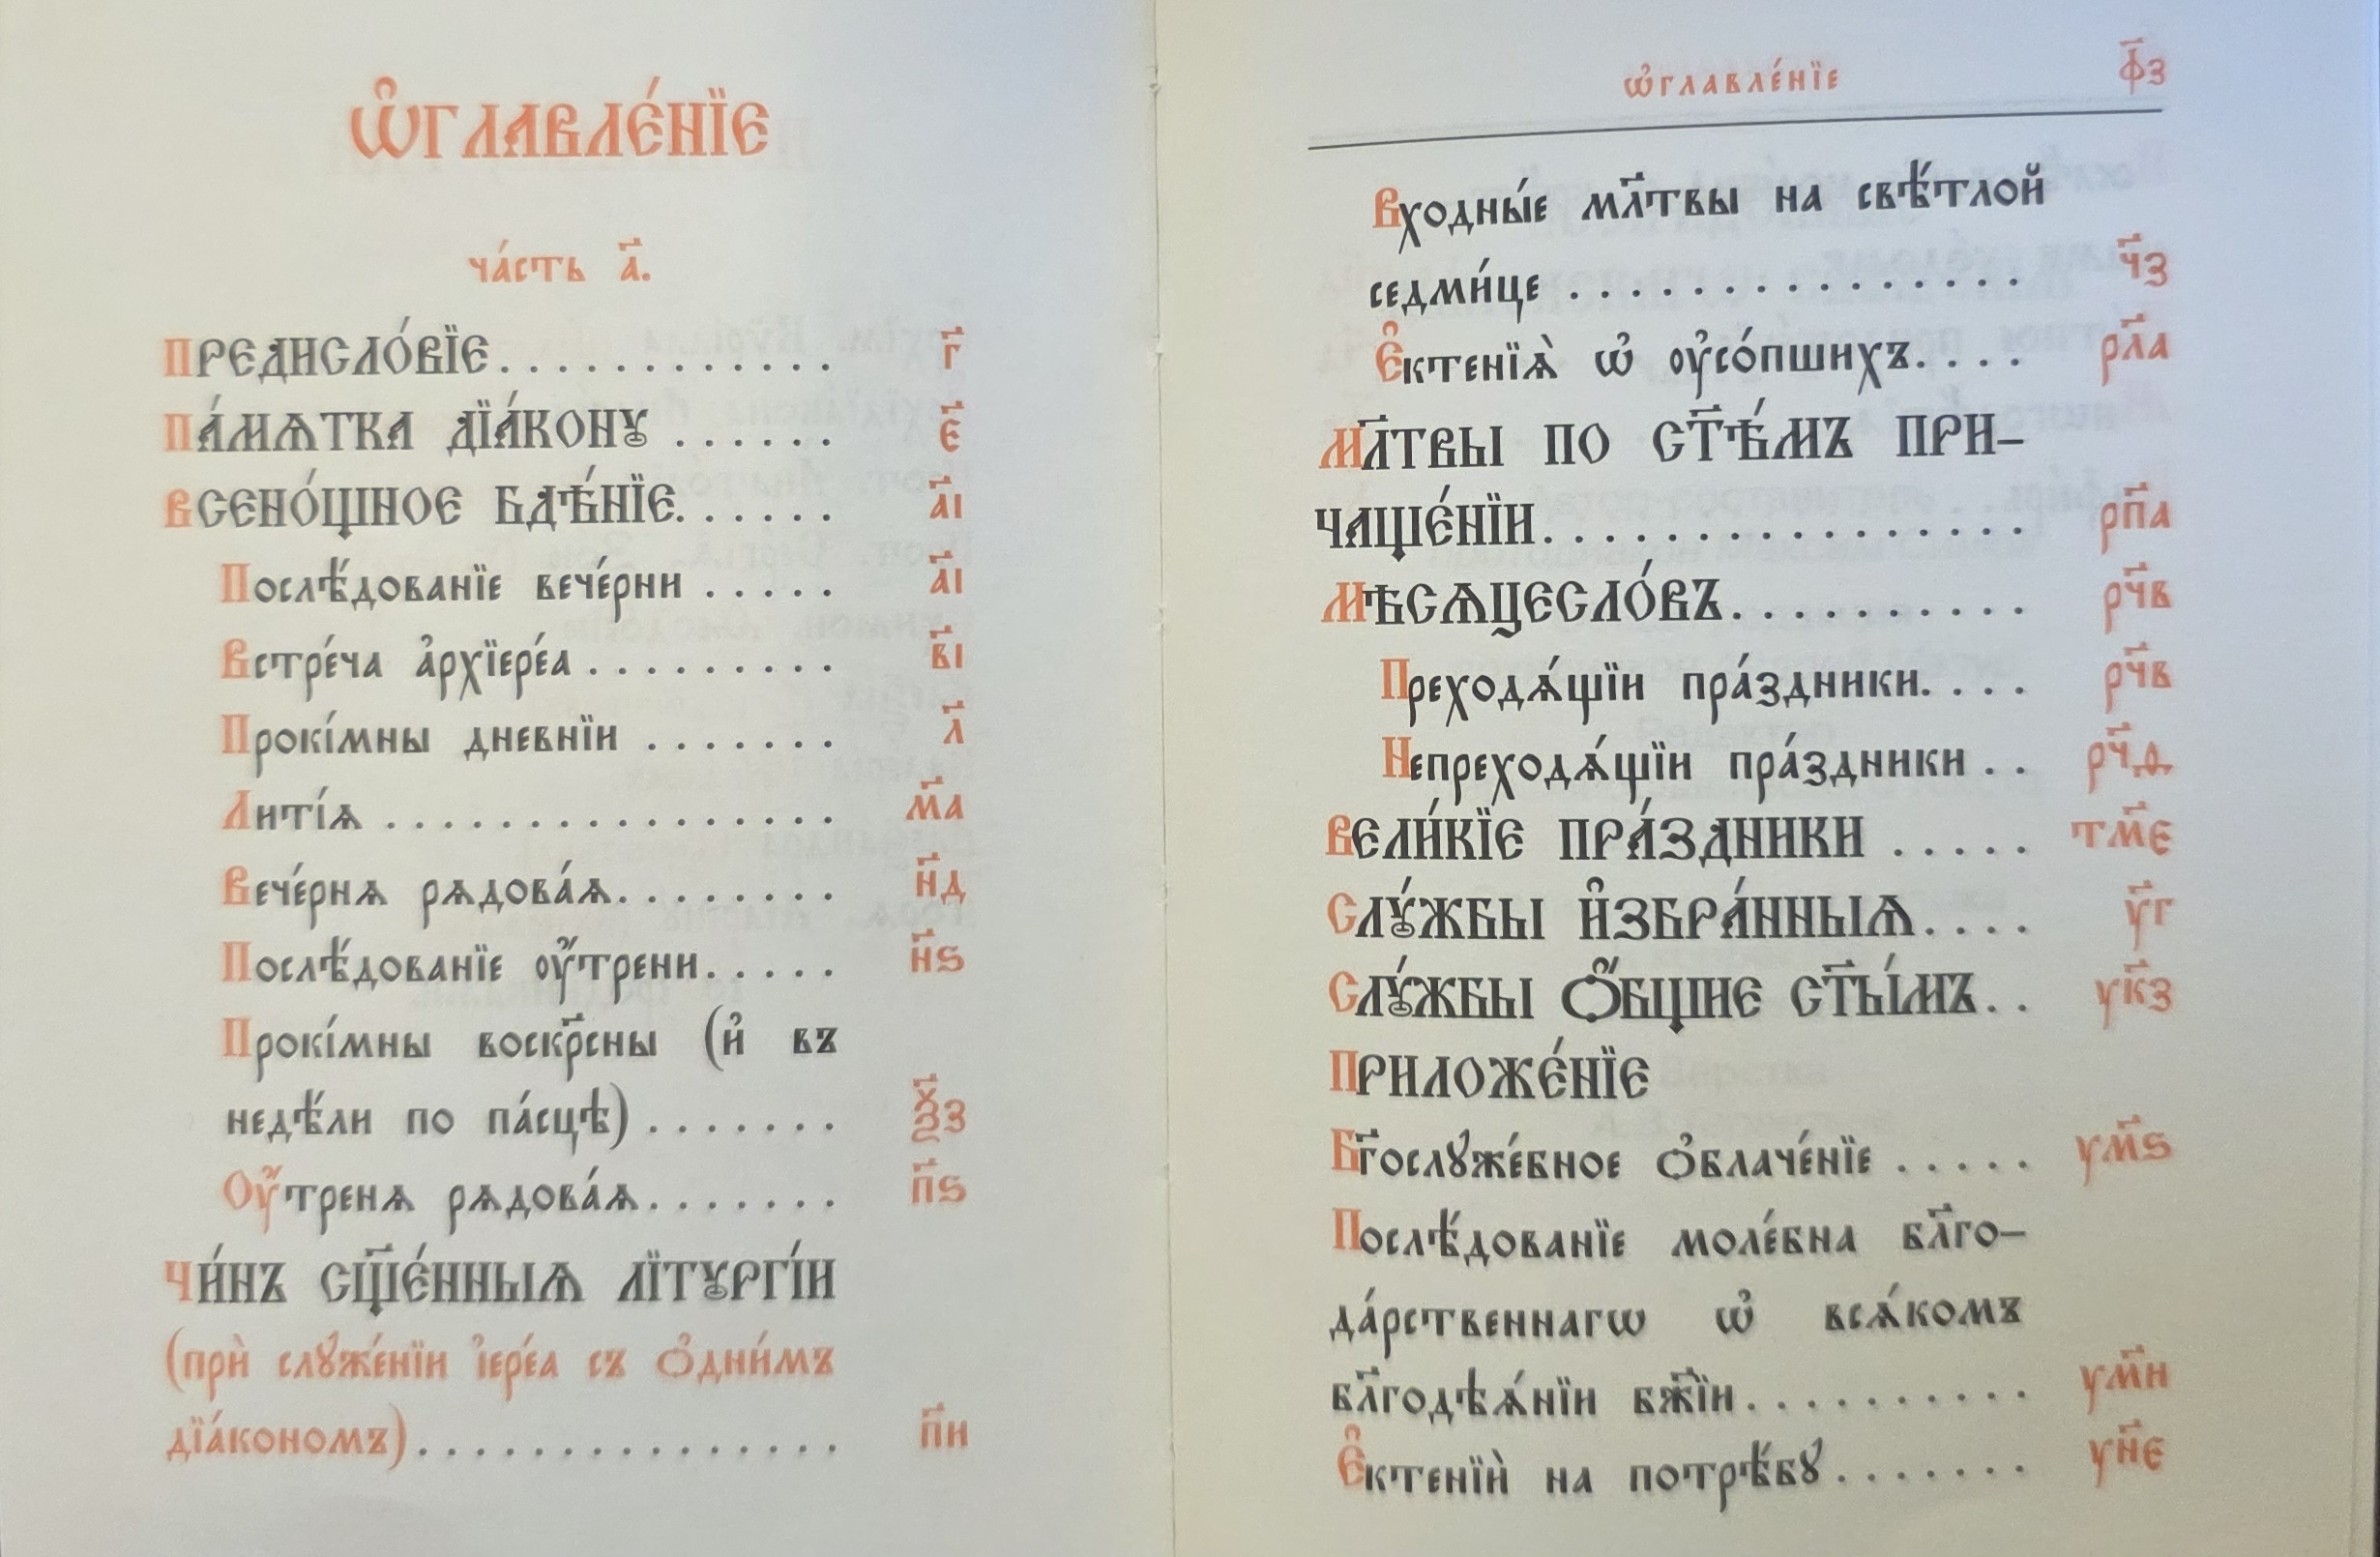 Ѡ҆главле́нїе
ча́сть а҃.
Предисло́вїе............ г҃
Па́мѧтка дїа́конꙋ ...... є҃
Всено́щное бдѣ́нїе...... а҃і
Послѣ́дованїе вече́рни ..... а҃і
Встре́ча а҆рхїере́а......... в҃і
Прокі́мны дневнїи ....... л҃
Литі́ѧ ................ м҃а
Вече́рнѧ рѧдова́ѧ........ н҃д
Послѣ́дованїе ᲂу҆́трени..... н҃ѕ
Прокі́мны воскр҃сны (и҆ въ
недѣ́ли по па́сцѣ)....... ѯ҃з
Оу҆́тренѧ рѧдова́ѧ....... п҃ѕ
Чи́нъ сщ҃е́нныѧ лїтꙋргі́и
(прѝ слꙋже́нїи і҆ере́а съ ѻ҆дни́мъ
дїа́кономъ)............... п҃и
ѡ҆главле́нїе ф҃з
Входны́е мл҃твы на свѣ́тлой
седми́це ............... ч҃з
Є҆ктенїѧ̀ ѡ҆ ᲂу҆со́пшихъ.... рл҃а
Мл҃твы по ст҃ѣ́мъ при-
чаще́нїи................ рп҃а
Мѣсѧцесло́въ.......... рч҃в
Преходѧ́щїи пра́здники.... рч҃в
Непреходѧ́щїи пра́здники .. рч҃д
Вели́кїе пра́здники ..... тм҃є
Слꙋ́жбы и҆збра́нныѧ.... у҃г
Слꙋ́жбы ѻ҆́бщие ст҃ы́мъ.. ук҃з
Приложе́нїе
Бг҃ослꙋже́бное ѻ҆блаче́нїе ..... ум҃ѕ
Послѣ́дованїе моле́бна бл҃го-
да́рственнагѡ ѡ҆ всѧ́комъ
бл҃годѣѧ́нїи бж҃їи.......... ум҃и
Є҆ктенїѝ на потрѣ́бꙋ....... ун҃є